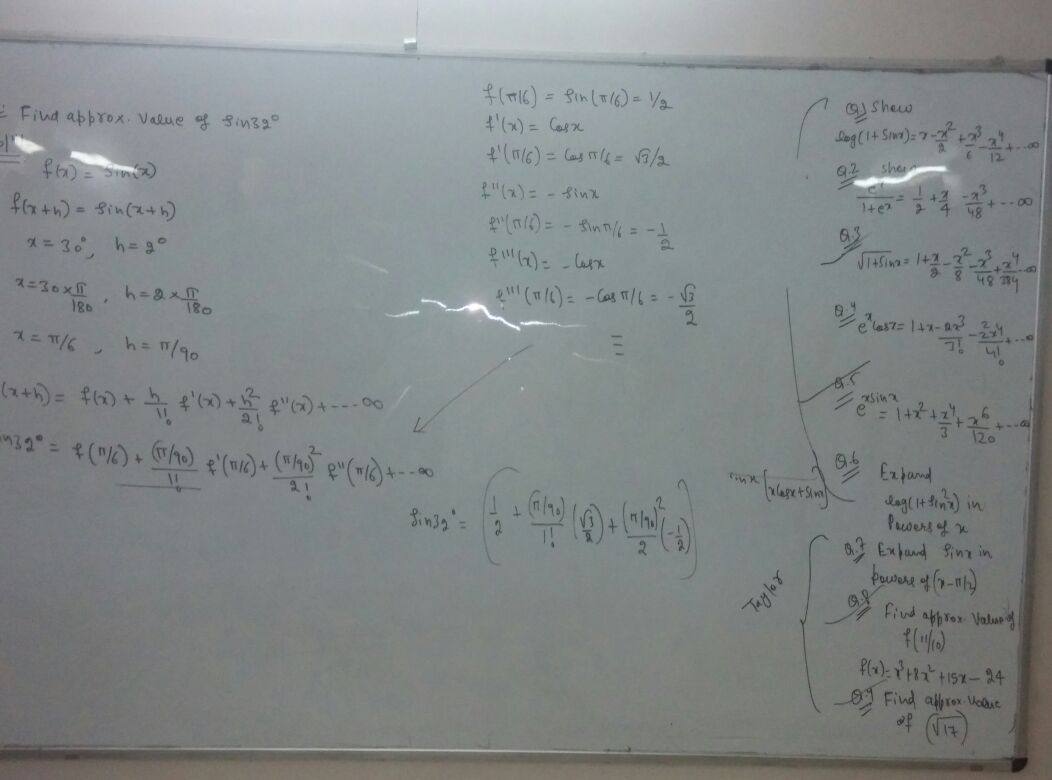 Find approx. Value of Sin32°
f(x) = Sin(x)
f(x+h) = Sin(x+h)
x = 30°, h = 2°
x = 30 × π/180, h = 2 × π/180
x = π/6, h = π/90
(x+h) = f(x) + h/1! f'(x) + h²/2! f''(x) + ---- ∞
in32° = f(π/6) + (π/90)/1! f'(π/6) + (π/90)²/2! f''(π/6) + --- ∞
f(π/6) = Sin(π/6) = 1/2
f'(x) = Cosx
f'(π/6) = Cos π/6 = √3/2
f''(x) = - Sinx
f''(π/6) = - Sin π/6 = - 1/2
f'''(x) = - Cosx
f'''(π/6) = - Cos π/6 = - √3/2
Sin32° = (1/2 + (π/90)/1! (√3/2) + (π/90)²/2 (-1/2))
Q.1 Show
log(1+Sinx) = x - x²/2 + x³/6 - x⁴/12 + --- ∞
Q.2 Show
/1+eˣ = 1/2 + x/4 - x³/48 + --- ∞
Q.3
√1+Sinx = 1 + x/2 - x²/8 - x³/48 + x⁴/384 --- ∞
Q.4
eˣCosx = 1 + x - 2x³/3! - 2²x⁴/4! + --- ∞
Q.5
e^xsinx
= 1 + x² + x⁴/3 + x⁶/120 + --- ∞
sinx [xCosx + Sinx]
Q.6 Expand
log(1+Sin²x) in
Powers of x
Taylor
Q.7 Expand Sinx in
Powers of (x - π/2)
Q.8
Find approx. Value of
f(11/10)
f(x) = x³ + 8x² + 15x - 24
Q.9 Find approx. Value
of (√17)